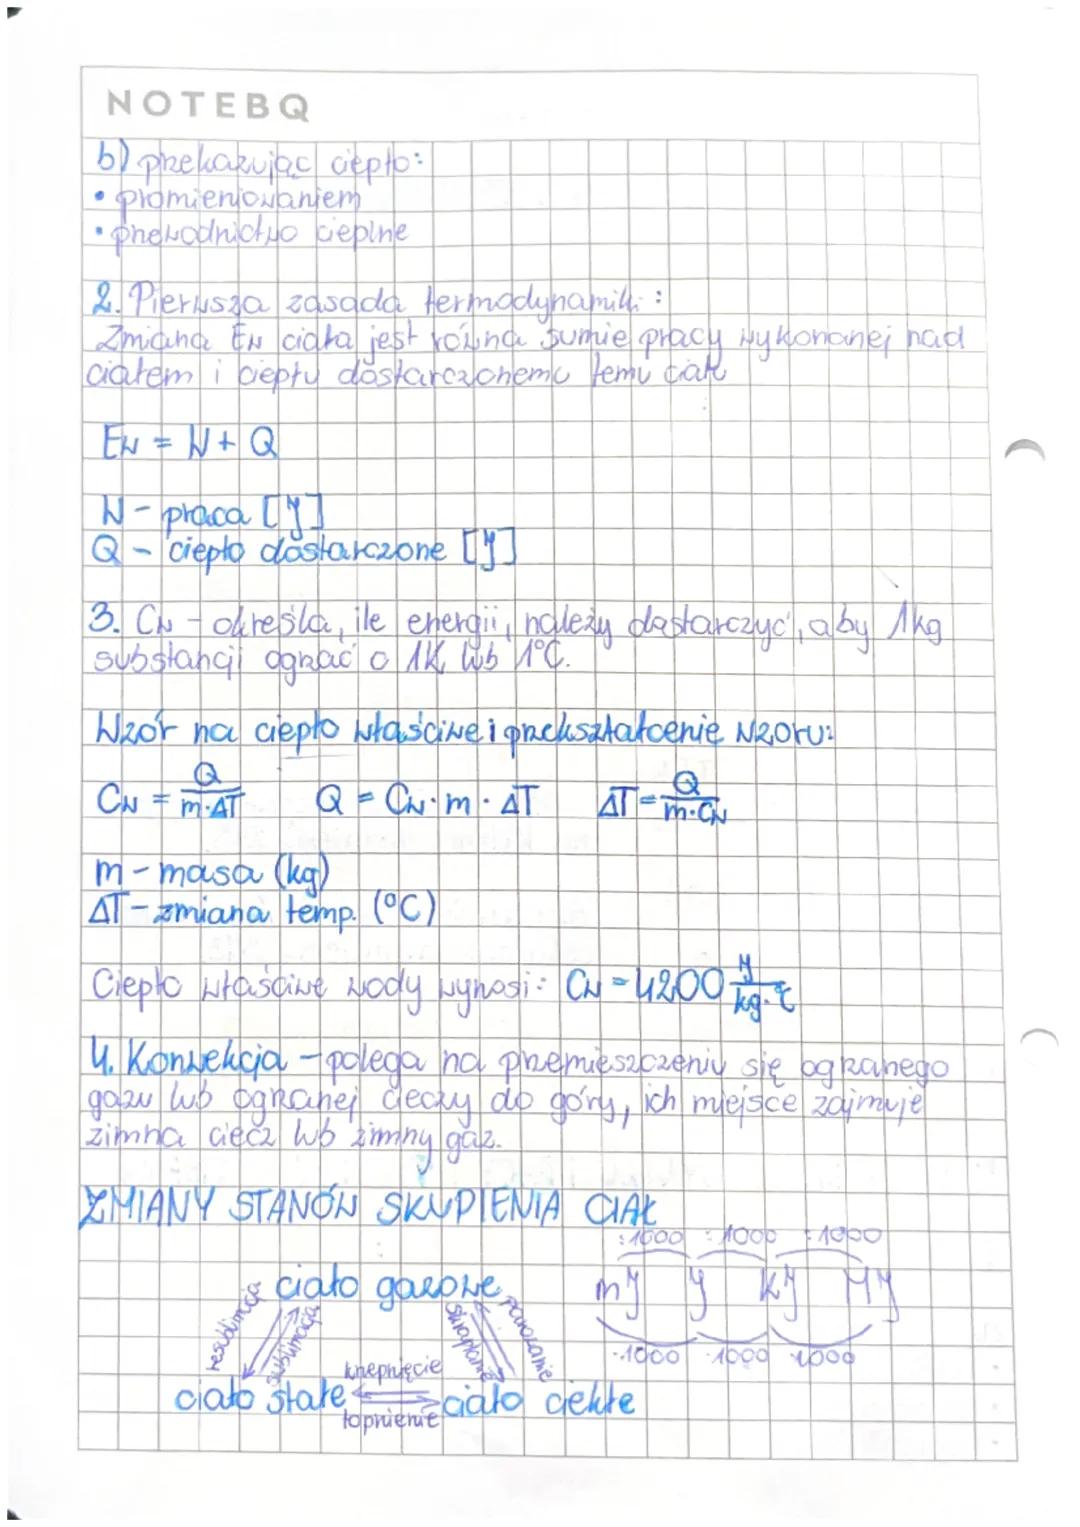 NOTEBQ
b) przekazując ciepło:
• promieniowaniem
• przewodnictwo cieplne
2. Pierwsza zasada termodynamiki:
Zmiana Ew ciała jest równa sumie pracy wykonanej nad
ciałem i ciepłu dostarczonemu temu
Ew = W + Q
W - praca [J]
Q - ciepło dostarczone [J]
3. Cw - określa, ile energii, należy dostarczyć, aby 1kg
substancji ogrzać o 1K lub 1°C.
Wzór na ciepło właściwe i przekształcenie wzoru:
Cw = Q/m·ΔT Q = Cw·m·ΔT ΔT = Q/m·Cw
m - masa (kg)
ΔT - zmiana temp. (°C)
Ciepło właściwe wody wynosi: Cw = 4200 J/kg·°C
4. Konwekcja - polega na przemieszczeniu się ogrzanego
gazu lub ogrzanej cieczy do góry, ich miejsce zajmuje
zimna ciecz lub zimny gaz.
ZMIANY STANÓW SKUPIENIA CIAŁ
:1000 :1000 :1000
ciało gazowe
mJ J kJ MJ
resublimacja sublimacja skraplanie parowanie
·1000 ·1000 ·1000
krzepnięcie
ciało stałe ciało ciekłe
topnienie